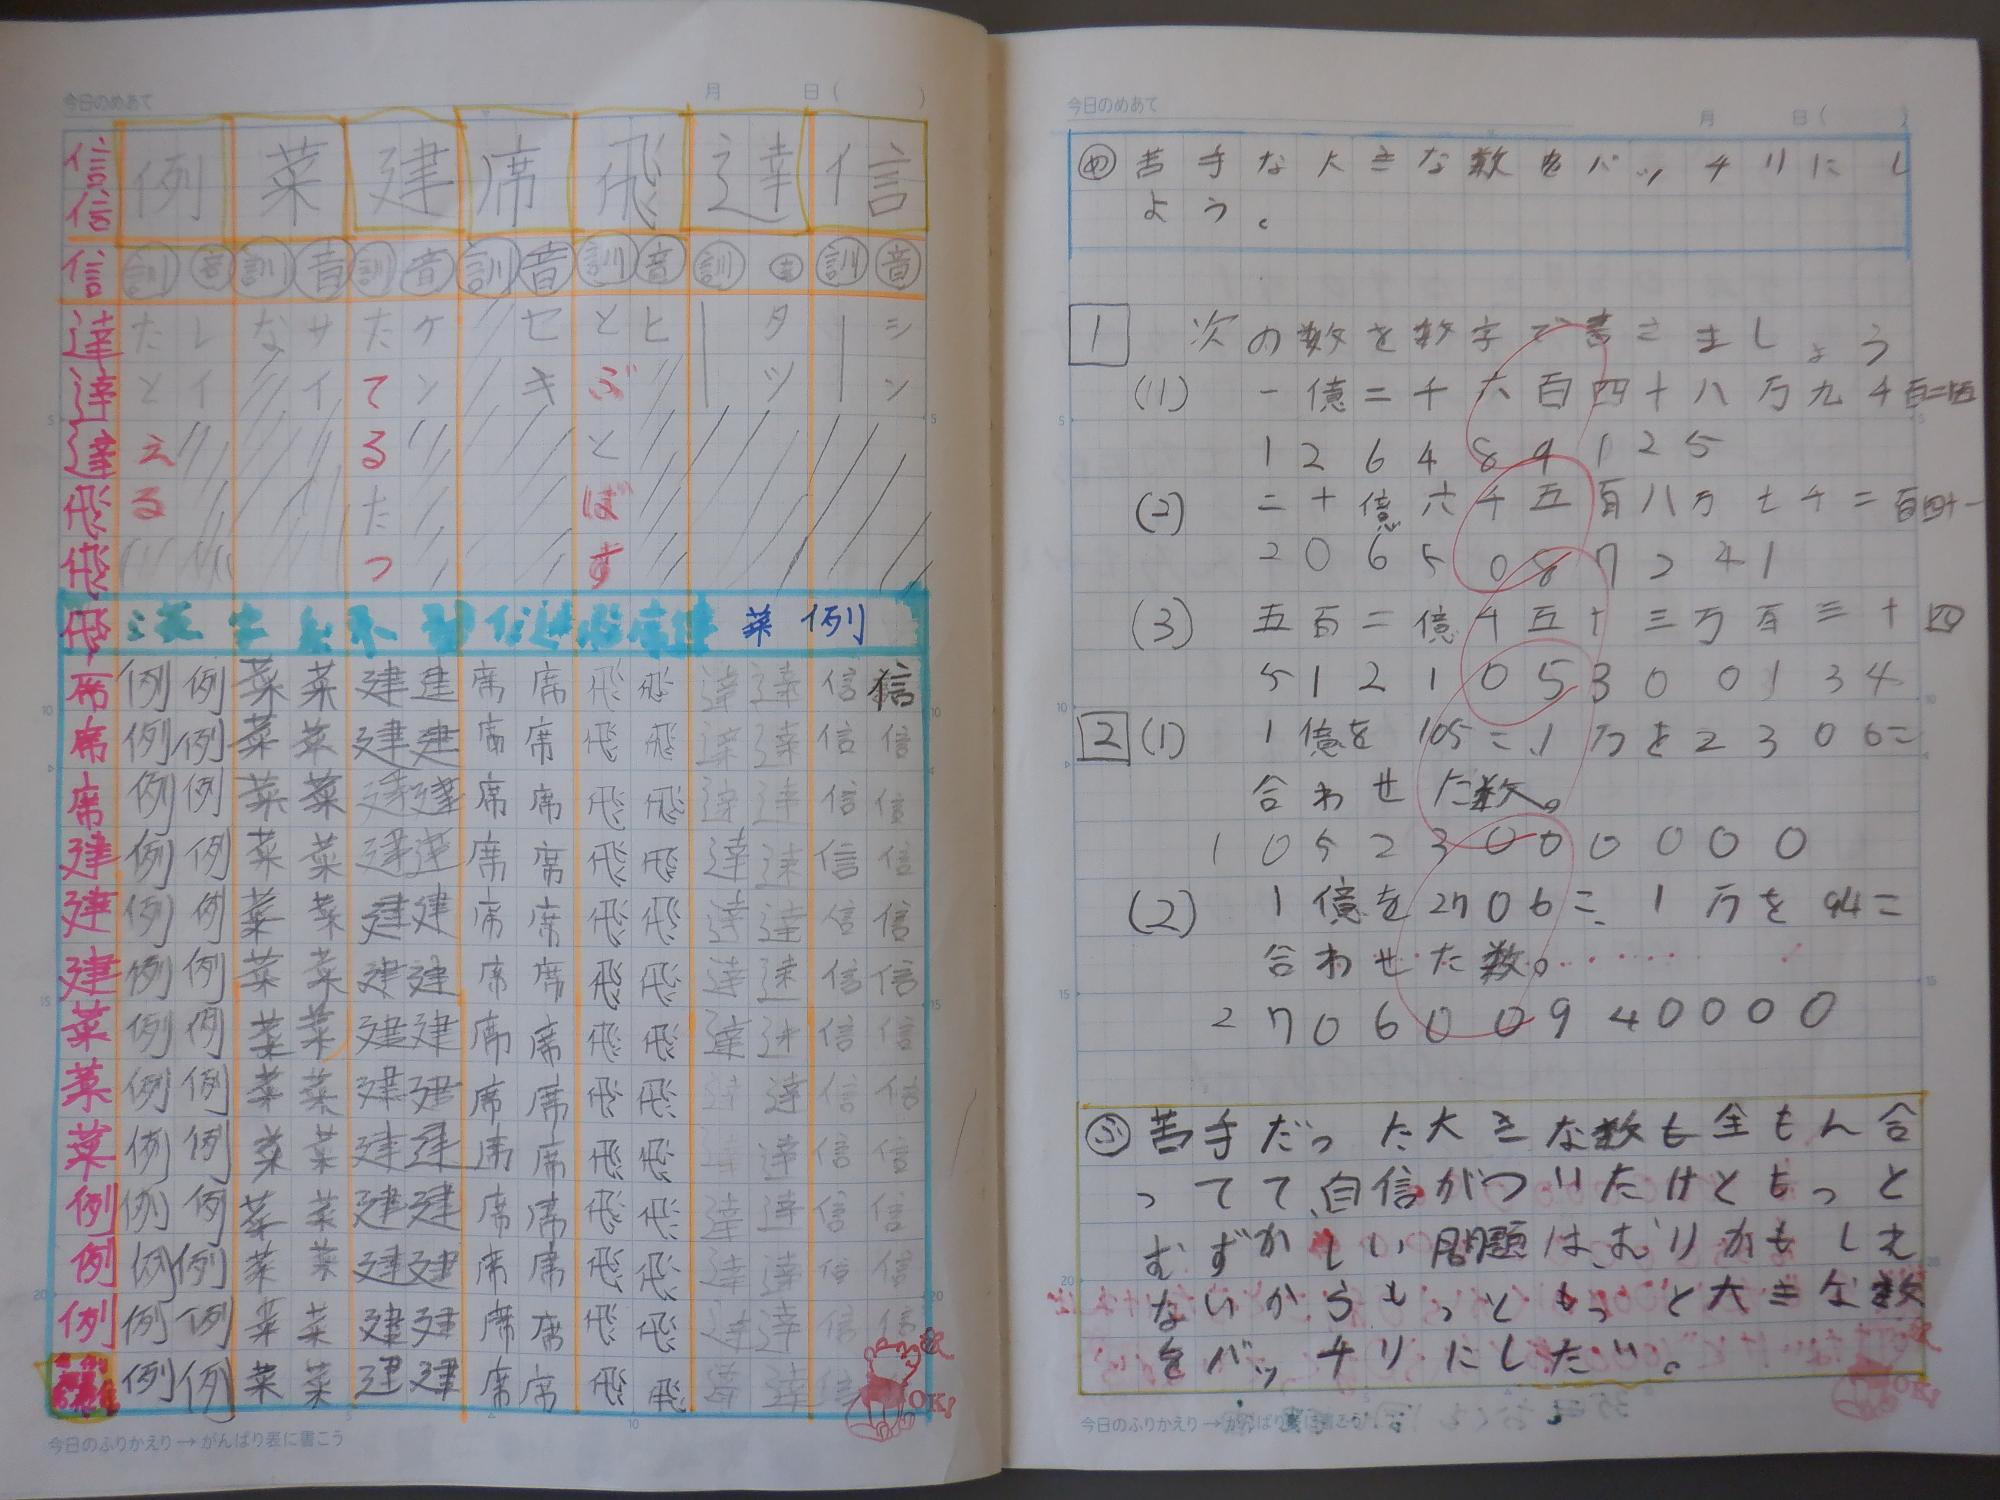 今日のめあて 月 日( )
例 菜 建 席 飛 達 信
訓 音 訓 音 訓 音 訓 音 訓 音 訓 音 訓 音
シン
タツ
ヒ
とぶ
とばす
セキ
ケン
たてる
たつ
サイ
な
レイ
たとえる
信信信達達達飛飛飛席席席建建建菜菜菜例例例
菜 例
例例菜菜建建席席飛飛達達信信
例例菜菜建建席席飛飛達達信信
例例菜菜建建席席飛飛達達信信
例例菜菜建建席席飛飛達達信信
例例菜菜建建席席飛飛達達信信
例例菜菜建建席席飛飛達達信信
例例菜菜建建席席飛飛達達信信
例例菜菜建建席席飛飛達達信信
例例菜菜建建席席飛飛達達信信
例例菜菜建建席席飛飛達達信信
例例菜菜建建席席飛飛達達信信
例例菜菜建建席席飛飛達達信信
例例菜菜建建席席飛飛達達信
OK!
今日のふりかえり→がんばり表に書こう
今日のめあて 月 日( )
め 苦手な大きな数をバッチリにし
よう。
1 次の数を数字で書きましょう
(1) 一億二千六百四十八万九千百二十五
126489125
(2) 二十億六千五百八万七千二百四十一
2065087241
(3) 五百二億千五十三万百三十四
512105300134
2 (1) 1億を105こ、1万を2306こ
合わせた数。
10523000000
(2) 1億を2706こ、1万を94こ
合わせた数。
270600940000
ふ 苦手だった大きな数も全もん合
ってて、自信がついたけともっと
むずかしい問題は、むりかもしえ
ないからもっともっと大きな数
をバッチリにしたい。
OK!
今日のふりかえり→がんばり表に書こう